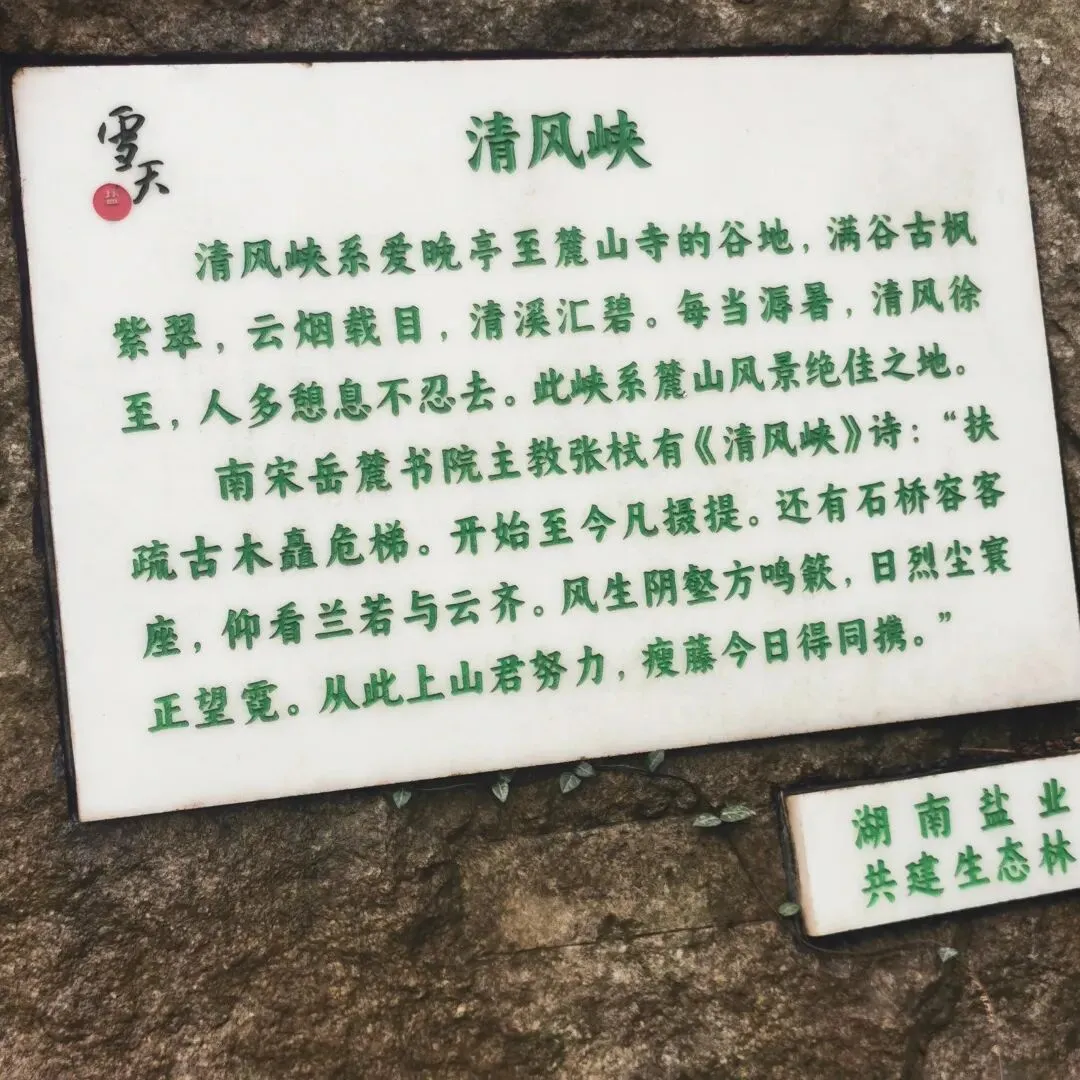 雪天
盐
清风峡
清风峡系爱晚亭至麓山寺的谷地，满谷古枫
紫翠，云烟载目，清溪汇碧。每当溽暑，清风徐
至，人多憩息不忍去。此峡系麓山风景绝佳之地。
南宋岳麓书院主教张栻有《清风峡》诗：“扶
疏古木矗危梯。开始至今凡摄提。还有石桥容客
座，仰看兰若与云齐。风生阴壑方鸣籁，日烈尘寰
正望霓。从此上山君努力，瘦藤今日得同携。”
湖南盐业
共建生态林